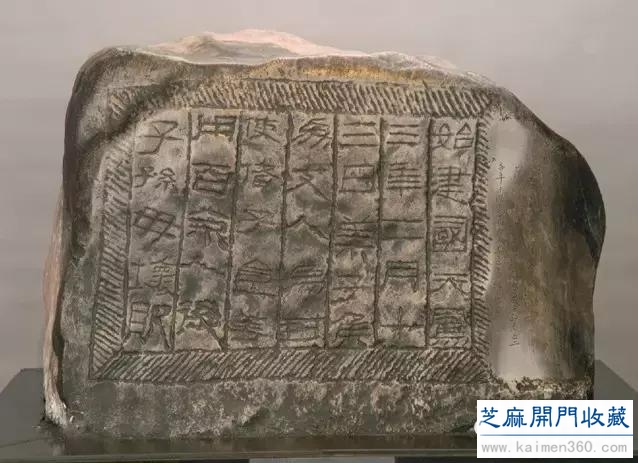 始建國天鳳
三年二月十
三日萊子侯
為支人為封
使偖子食等
用百余人後
子孫毋壞敗
芝麻開門收藏
www.kaimen360.com